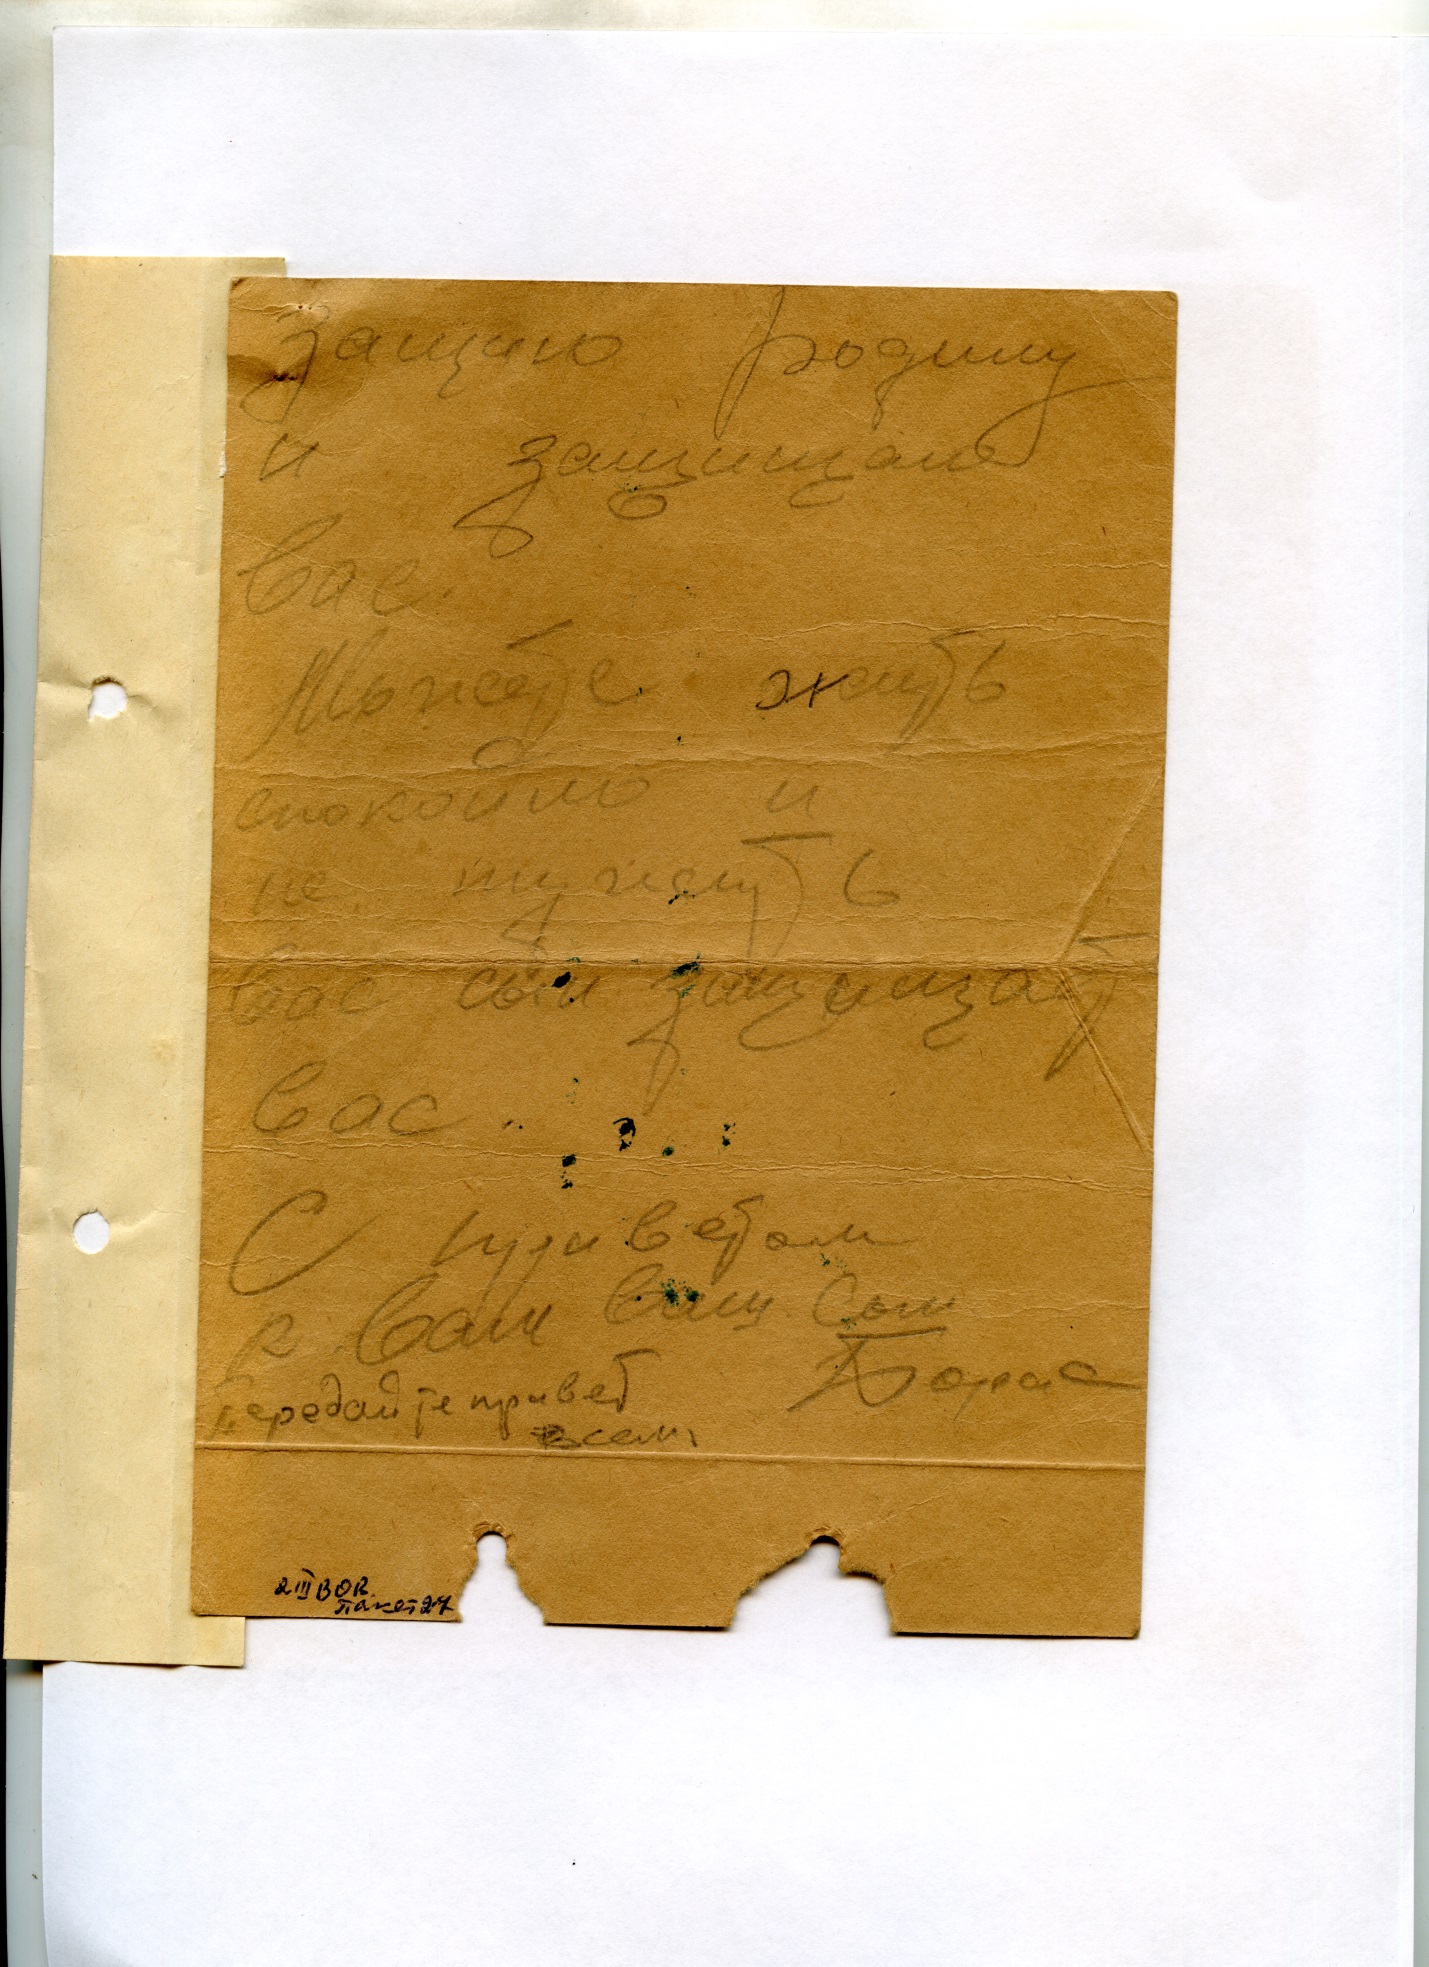 защищю родину
и защищаю
Вас.
Можете жить
спокойно и
не тужить
Вас сын защищает
Вас.
С приветом
к Вам Ваш Сын
Борис
Передайте привет
всем,
2 III ВОВ
Пакет 27